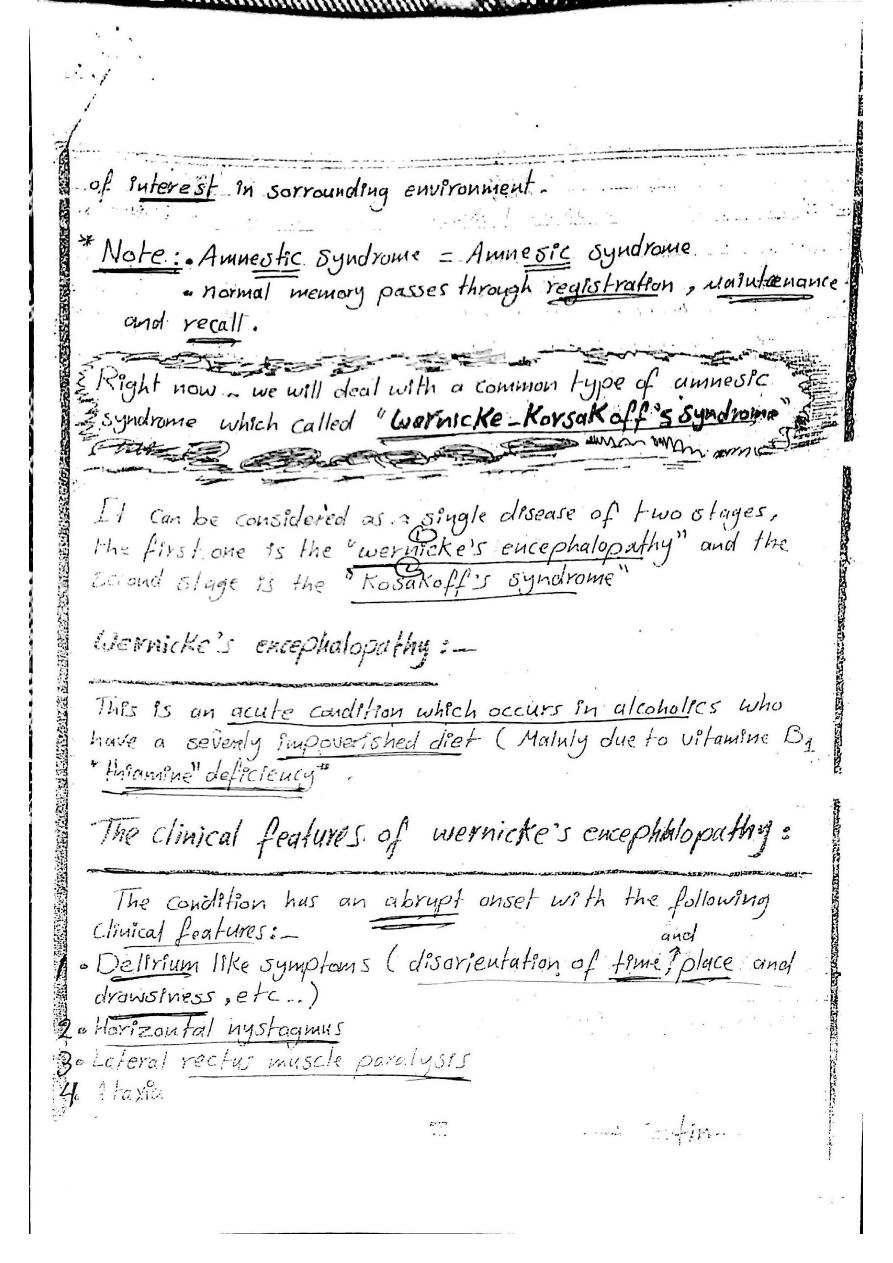 of interest in sorrounding environment.
* Note:. Amnestic syndrome = Amnesic syndrome.
- normal memory passes through registration, maintaenance
and recall.
Right now ~ we will deal with a common type of amnesic
syndrome which called "Wernicke-Korsakoff's Syndrome"
It can be considered as a single disease of two stages,
the first one is the "wernicke's encephalopathy" and the
second stage is the "Kosakoff's syndrome"
1
2
Wernicke's encephalopathy :-
This is an acute condition which occurs in alcoholics who
have a severly impoverished diet ( Mainly due to vitamine B1
"thiamine" deficiency"
The clinical features of wernicke's encephhlopathy:
The condition has an abrupt onset with the following
Clinical features:-
1. Delirium like symptoms ( disorientation of time and place and
drowsiness, etc...)
2. Horizontal nystagmus
3. Lateral rectus muscle paralysis
4. Ataxia